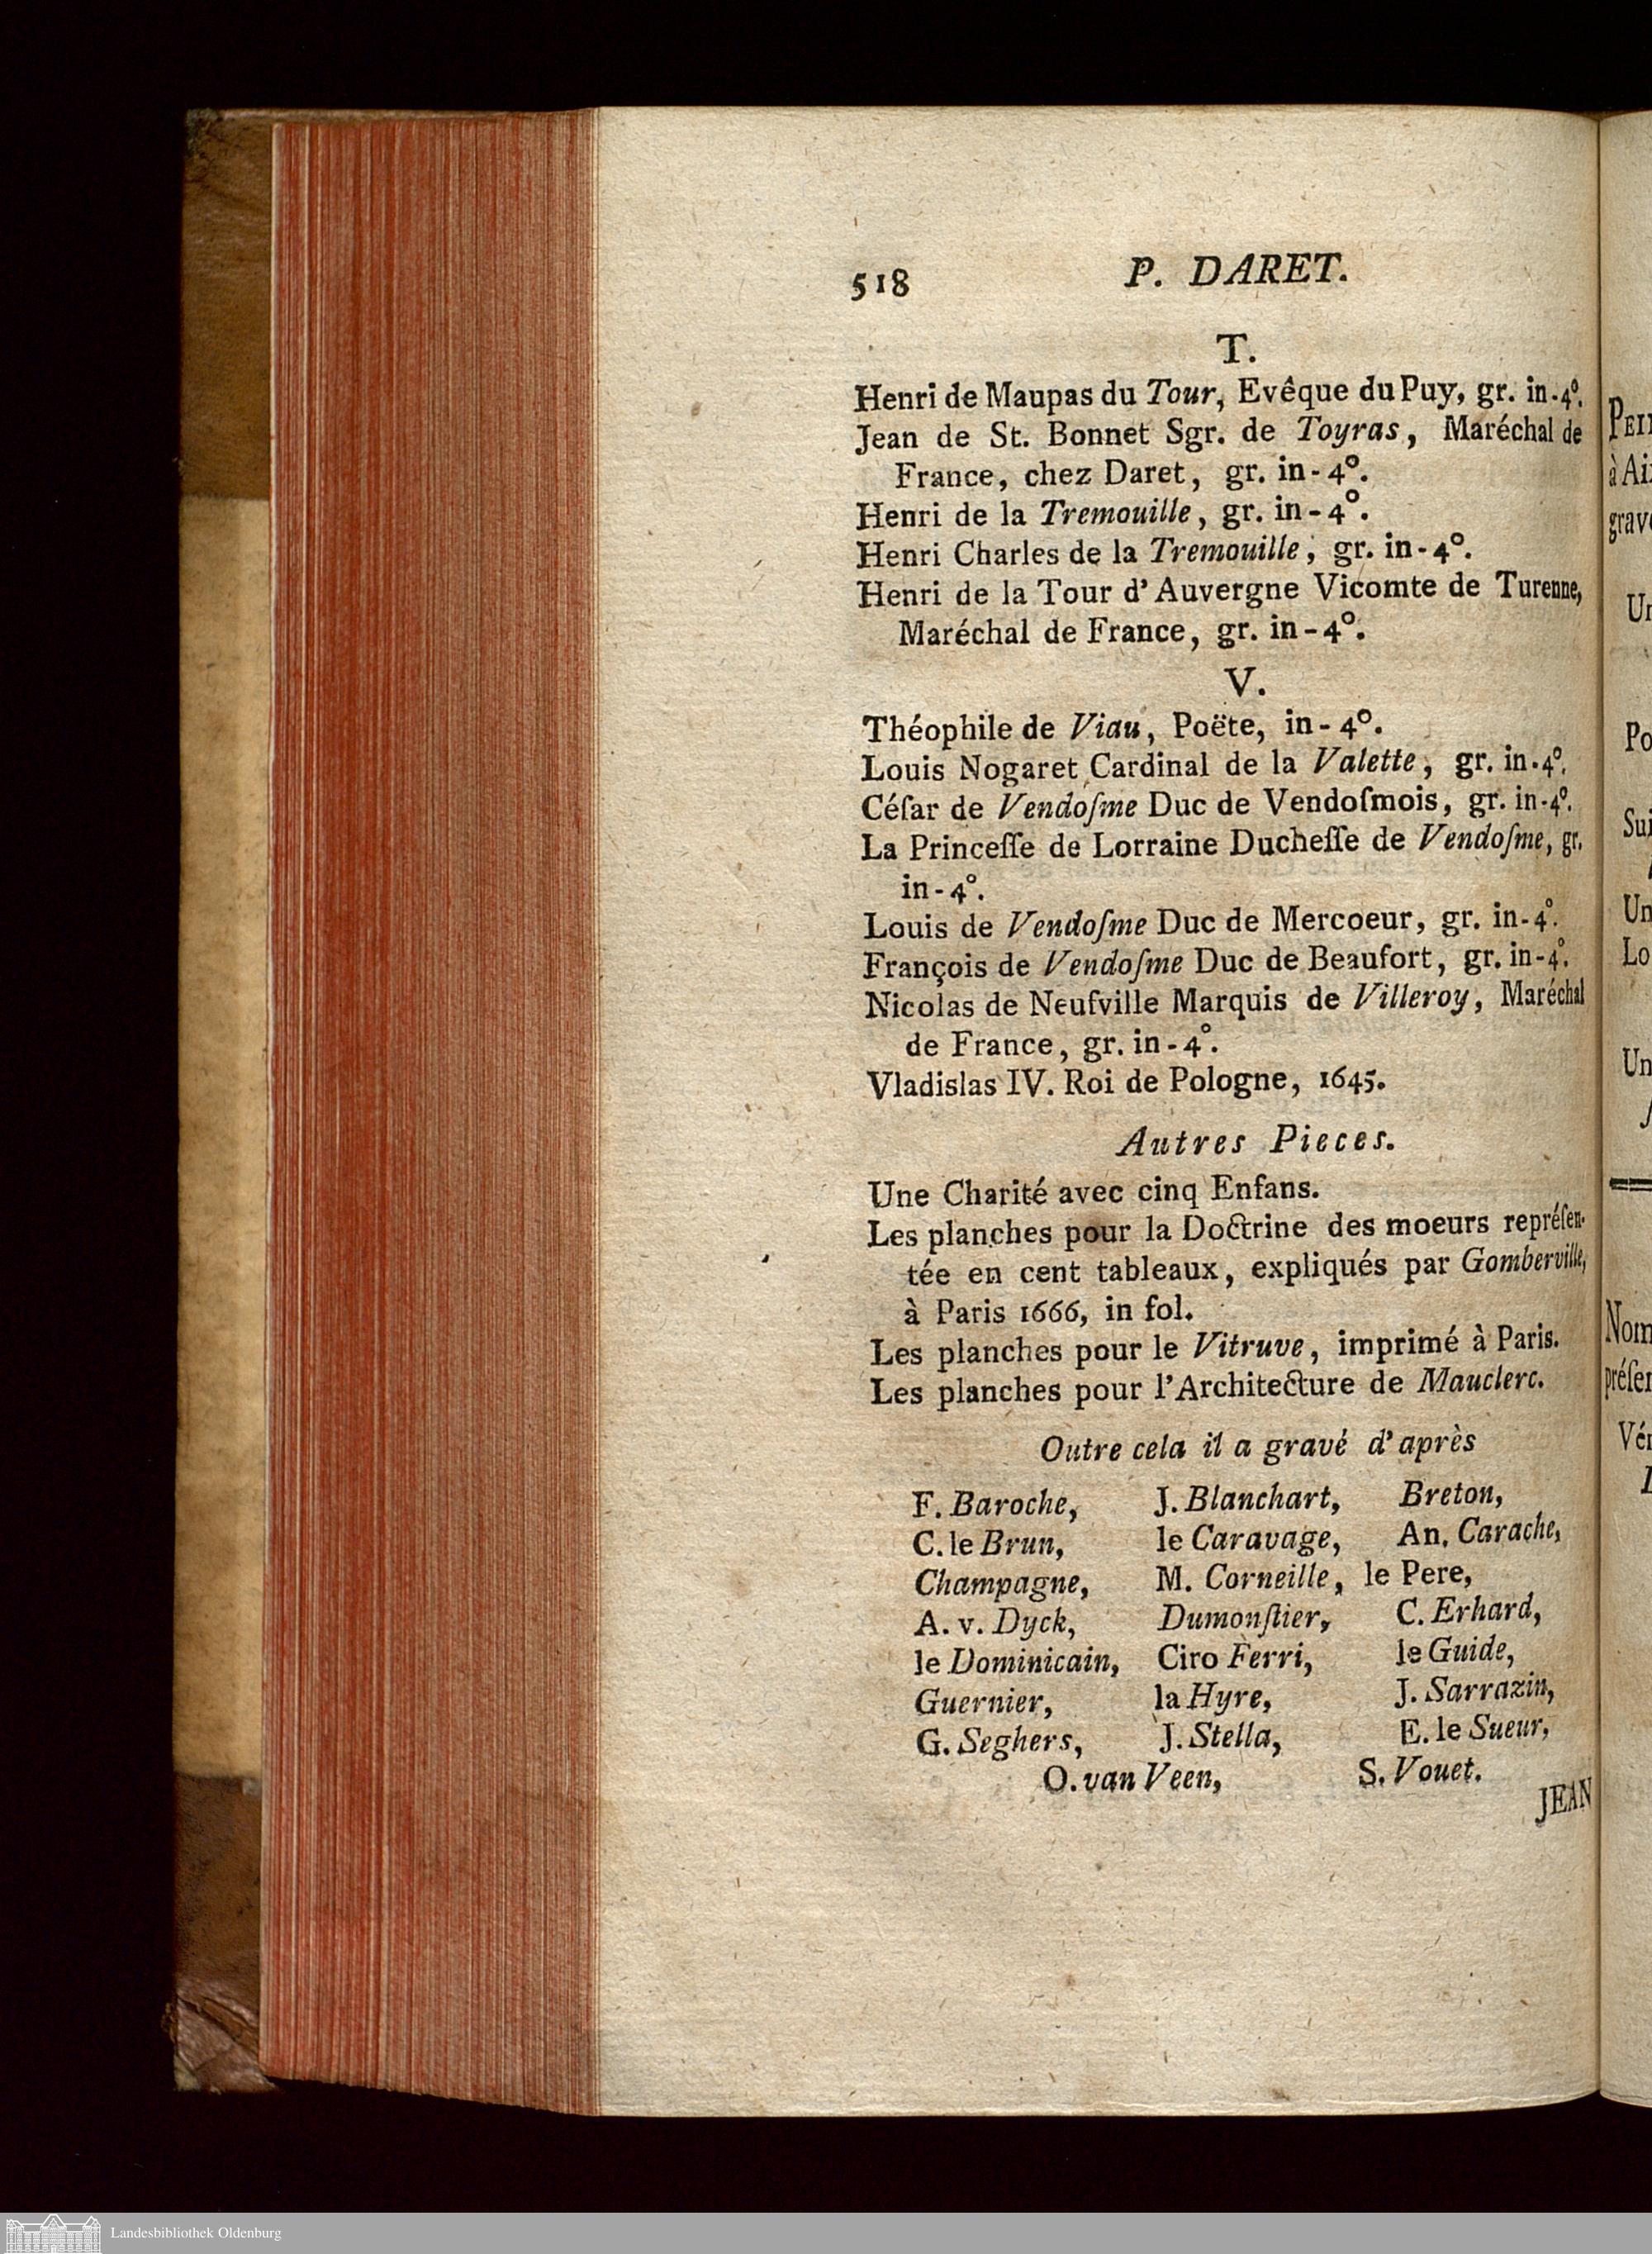 518 P. DARET.
T.
Henri de Maupas du Tour, Evêque du Puy, gr. in-4º.
Jean de St. Bonnet Sgr. de Toyras, Maréchal de
France, chez Daret, gr. in-4º.
Henri de la Tremouille, gr. in-4º.
Henri Charles de la Tremouille, gr. in-4º.
Henri de la Tour d'Auvergne Vicomte de Turenne,
Maréchal de France, gr. in-4º.
V.
Théophile de Viau, Poëte, in-4º.
Louis Nogaret Cardinal de la Valette, gr. in-4º.
Céſar de Vendoſme Duc de Vendoſmois, gr. in-4º.
La Princeſſe de Lorraine Ducheſſe de Vendoſme, gr.
in-4º.
Louis de Vendoſme Duc de Mercoeur, gr. in-4º.
François de Vendoſme Duc de Beaufort, gr. in-4º.
Nicolas de Neufville Marquis de Villeroy, Maréchal
de France, gr. in-4º.
Vladislas IV. Roi de Pologne, 1645.
Autres Pieces.
Une Charité avec cinq Enfans.
Les planches pour la Doctrine des moeurs repréſen-
tée en cent tableaux, expliqués par Gomberville,
à Paris 1666, in fol.
Les planches pour le Vitruve, imprimé à Paris.
Les planches pour l'Architecture de Mauclerc.
Outre cela il a gravé d'après
F. Baroche, J. Blanchart, Breton,
C. le Brun, le Caravage, An. Carache,
Champagne, M. Corneille, le Pere,
A. v. Dyck, Dumonſtier, C. Erhard,
le Dominicain, Ciro Ferri, le Guide,
Guernier, la Hyre, J. Sarrazin,
G. Seghers, J. Stella, E. le Sueur,
O. van Veen, S. Vouet.
JEAN
Landesbibliothek Oldenburg